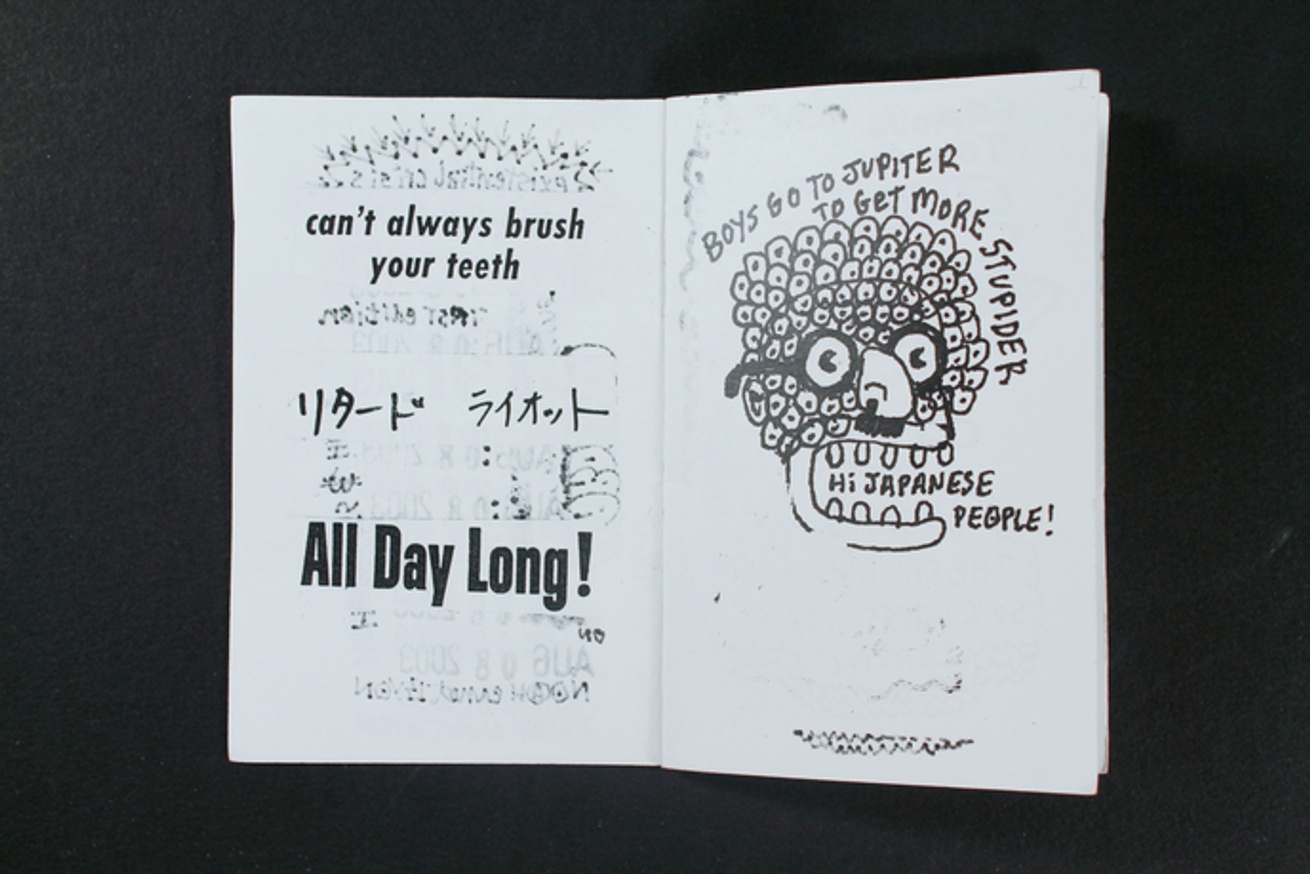 existential crisis
can't always brush
your teeth
First edition
リタード ライオット
AUG 0 8 2003
AUG 0 8 2003
All Day Long!
AUG 0 8 2003
BOYS GO TO JUPITER
TO GET MORE STUPIDER
Hi JAPANESE
PEOPLE!